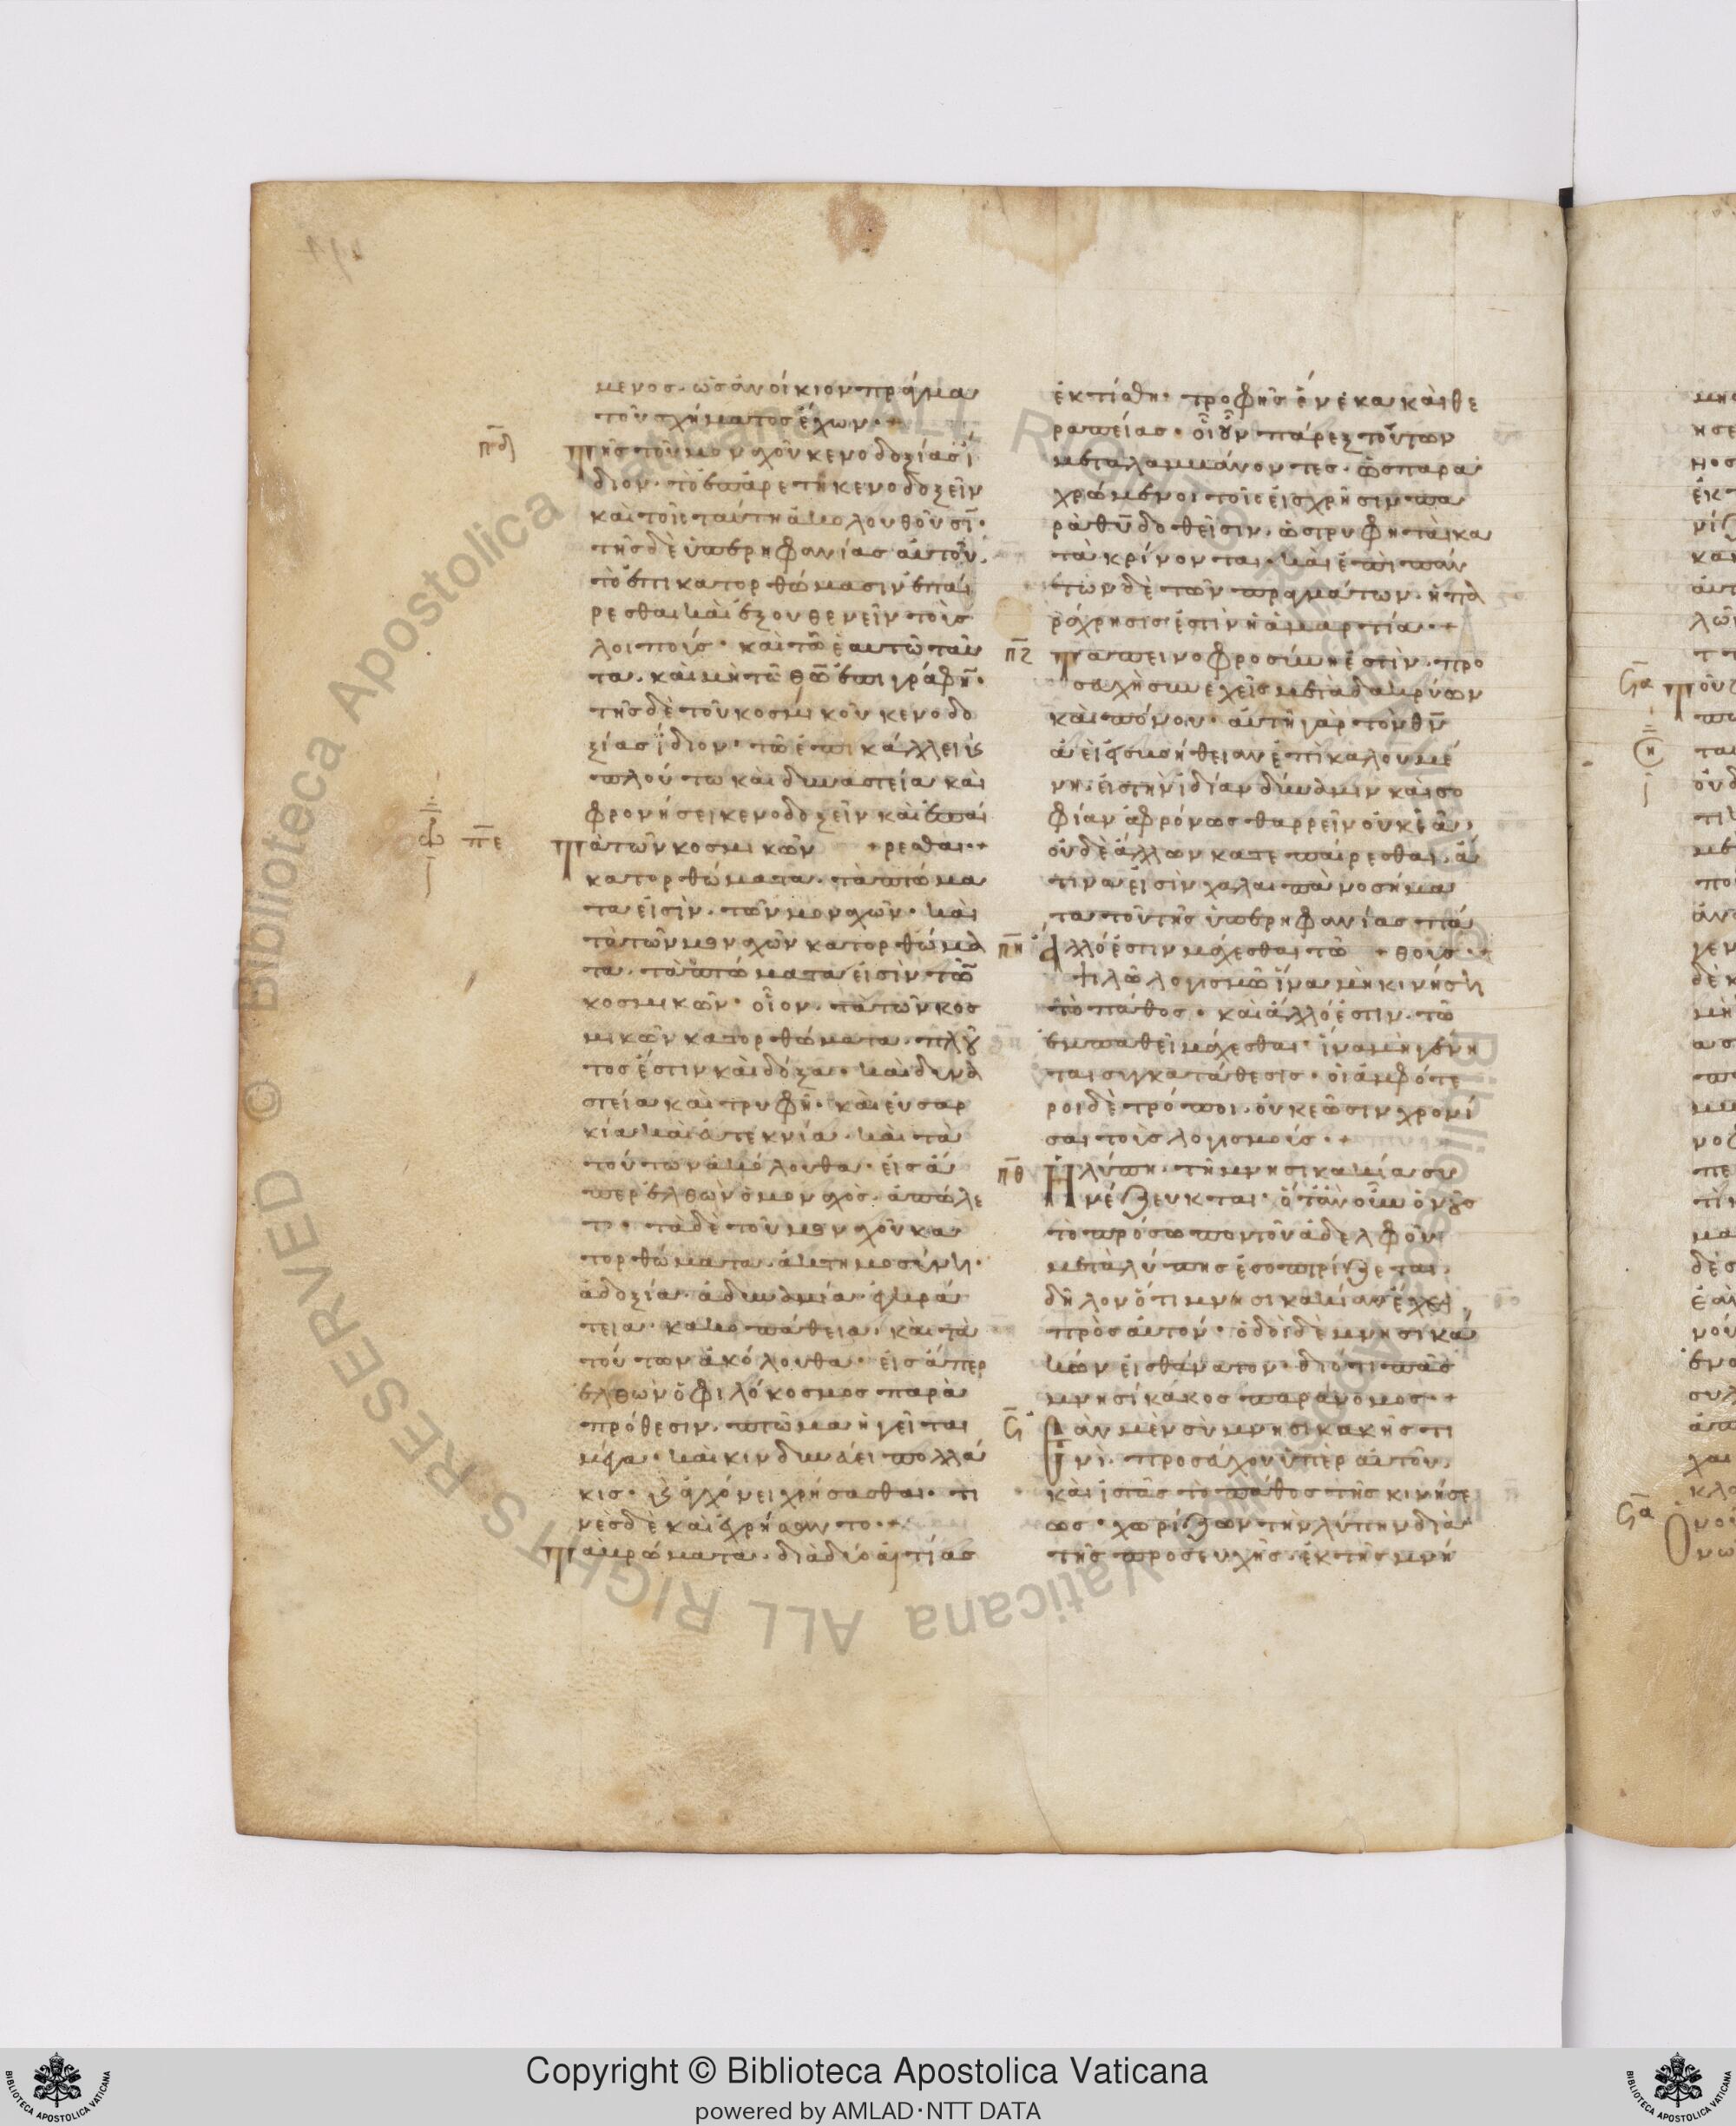 μενος· ὡς ἀνοίκιον πρᾶγμα
τοῦ σχήματος ἔχων·+
πδ Τῆς τοῦ μοναχοῦ κενοδοξίας ἴ
διον· τὸ ἐπ' ἀρετῆ κενοδοξεῖν
καὶ τοῖς ταύτη ἀκολουθοῦσι·
τῆς δὲ ὑπερηφανίας αὐτοῦ·
τὸ ἐπὶ κατορθώμασιν ἐπαί
ρεσθαι καὶ ἐξουθενεῖν τοὺς
λοιπούς· καὶ τῶ ἑαυτῶ ταῦ
τα· καὶ μὴ τῶ θῶ ἐπιγράφην·
τῆς δὲ τοῦ κοσμικοῦ κενοδο
ξίας ἴδιον· τῶ ἐπι κάλλει κ
πλούτω καὶ δυναστεία καὶ
φρονήσει κενοδοξεῖν καὶ ἐπαί
πε Τὰ τῶν κοσμικῶν +ρεσθαι·+
κατορθώματα· τὰ πτώμα
τα εἰσὶν· τῶν μοναχῶν· καὶ
τὰ τῶν μοναχῶν κατορθώμα
τα· τὰ πτώματα εἰσὶν τῶν
κοσμικῶν· οἷον· τὰ τῶν κοσ
μικῶν κατορθώματα· πλοῦ
τος ἐστιν καὶ δόξα· καὶ δυνα
στεία καὶ τρυφὴ· καὶ εὐσαρ
κία καὶ εὐτεκνία· καὶ τὰ
τούτων ἀκόλουθα· εἰς ἅ
περ ἐλθὼν ὁ μοναχὸς· ἀπώλε
το· τὰ δὲ τοῦ μοναχοῦ κα
τορθώματα· ἀκτημοσύνη·
ἀδοξία· ἀδυναμία· ἐγκρά
τεια· κακοπάθεια· καὶ τὰ
τούτων ἀκόλουθα· εἰς ἅπερ
ἐλθὼν ὁ φιλόκοσμος παρὰ
πρόθεσιν· πτῶμα ἡγεῖται
μέγα· καὶ κινδυνεύει πολλά
κις· κ ἀγχόνει χρήσασθαι· τι
νὲς δὲ καὶ ἐχρήσαντο·+
Τὰ βρώματα· διὰ δύο αἰτίας
ἐκτίσθη· τροφῆς ἕνεκα καὶ θε
ραπείας· οἱ οὖν πάρεξ τούτων
μεταλαμμάνοντες· ὡς παρα
χρώμενοι τοῖς εἰς χρῆσιν πα
ρὰ θυ δοθεῖσιν· ὡς τρυφηταὶ κα
τακρίνονται· καὶ ἐπὶ πάν
των δὲ τῶν πραγμάτων· ἡ πα
ράχρησις ἐστὶν ἡ ἁμαρτία·+
πζ Ταπεινοφροσύνη ἐστὶν· προ
σευχὴ συνεχεῖς μετὰ δακρύων
καὶ πόνου· αὕτη γὰρ τὸν θν
ἀεὶ εἰς βοήθειαν ἐπικαλουμέ
νη· εἰς τὴν ἰδίαν δύναμιν καὶ σο
φίαν ἀφρόνως θαρρεῖν οὐκ ἐᾶ·
οὐδὲ ἄλλων κατεπαίρεσθαι· ἅ
τινα εἰσὶν χαλαιπὰ νοσήμα
τα τοῦ τῆς ὑπερηφανίας πά
πη Ἄλλό ἐστιν μάχεσθαι τῶ +θους·+
ψιλῶ λογισμῶ ἵνα μὴ κινήση
τὸ πάθος· καὶ ἄλλό ἐστιν· τῶ
ἐμπαθεῖ μάχεσθαι· ἵνα μὴ γένη
ται συγκατάθεσις· οἱ ἀμφότε
ροι δὲ τρόποι· οὐκ ἐῶσιν χρονί
σαι τοῖς λογισμοίς·+
πθ Ἡ λύπη· τῆ μνησικακία συ
νέζευκται· ὅταν οὖν ὁ νοῦς
τὸ πρόσωπον τοῦ ἀδελφοῦ
μετὰ λύπης ἐσοπτρίζεται·
δῆλον ὅτι μνησικακίαν ἔχει
πρὸς αὐτόν· ὁδοὶ δὲ μνησικά
κων εἰς θάνατον· διότι πᾶς
μνησίκακος παράνομος·+
ϟ Ἐὰν μὲν σὺ μνησικακῆς τι
νὶ· προσεύχου ὑπὲρ αὐτοῦ·
καὶ ἱστᾶς τὸ πάθος τῆς κινήσε
ως· χωρίζων τὴν λύπην διὰ
τῆς προσευχῆς· ἐκ τῆς μνή
Copyright © Biblioteca Apostolica Vaticana
powered by AMLAD·NTT DATA